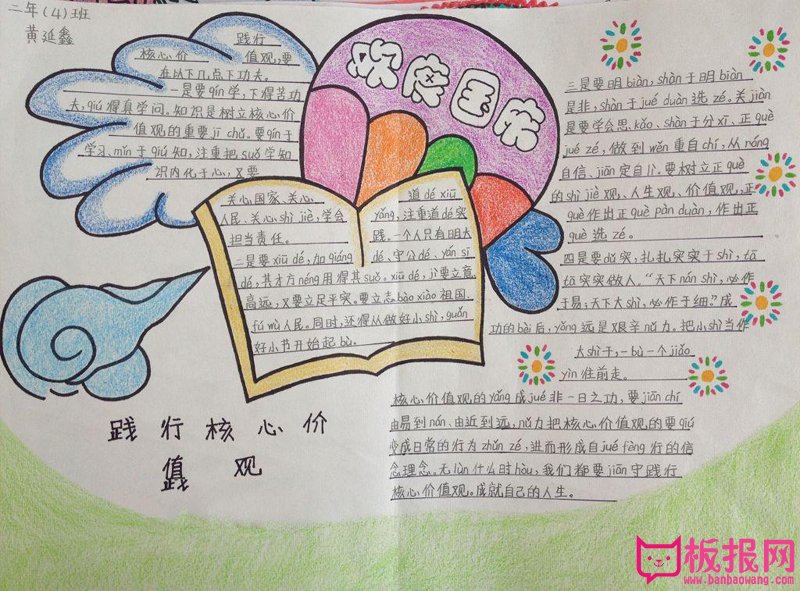 二年(4)班
黄延鑫
欢度国庆
践行
核心价值观,要
在以下几点下功夫。
一是要qín学,下得苦功
夫,qiú得真学问。知识是树立核心价
值观的重要jī chǔ。要qín于
学习、mǐn于qiú知,注重把suǒ学知
识内化于心,又要
关心国家、关心
人民、关心shì jiè,学会
担当责任。
二是要xiū dé,加qiáng
道dé xiū
yǎng,注重道dé实
践。一个人只有明大
dé、守公dé、yán sī
dé,其才方néng用得其suǒ。xiū dé,jì要立意
高远,又要立足平实。要立志bào xiào祖国、
fú wù人民。同时,还得从做好小shì,guǎn
好小节开始起bù。
三是要明biàn,shàn于明biàn
是非,shàn于jué duàn选zé。关jiàn
是要学会思kǎo、shàn于分xī,正què
jué zé,做到wěn重自chí,从róng
自信、jiān定自lì。要树立正què
的shì jiè观、人生观、价值观,正
què作出正què pàn duàn,作出正
què选zé。
四是要dǔ实,扎扎实实于shì,tā
tā实实做人。“天下nán shì,必作
于易;天下大shì,必作于细。”成
功的bèi后,yǒng远是艰辛nǔ力。把小shì当作
大shì干,一bù一个jiǎo
yìn往前走。
核心价值观的yǎng成jué非一日之功,要jiān chí
由易到nán、由近到远,nǔ力把核心价值观的要qiú
变成日常的行为zhǔn zé,进而形成自jué fèng行的信
念理念。无lùn什么时hòu,我们都要jiān守践行
核心价值观。成就自己的人生。
践行核心价
值观
践
板报网
www.banbaowang.com